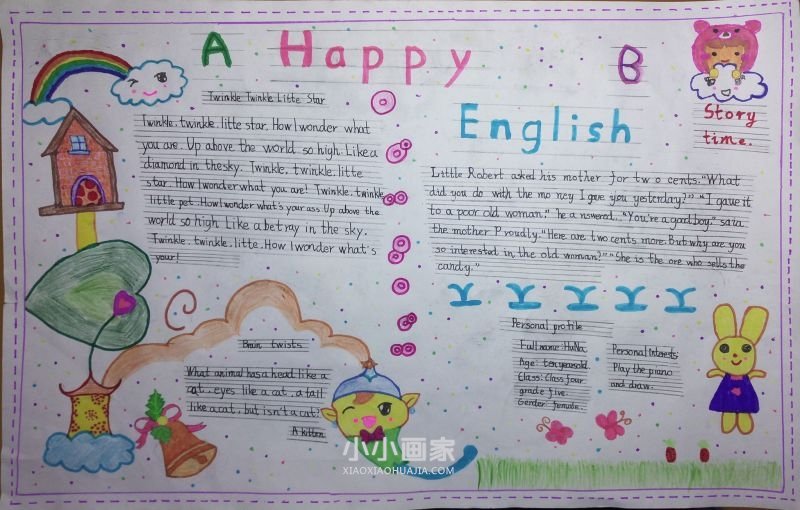 A Happy B
English
Story
time.
Twinkle Twinkle Litte Star
Twinkle. twinkle. litte star. How I wonder what
you are. Up above the world so high. Like a
diamond in the sky. Twinkle. twinkle. litte
star. How I wonder what you are! Twinkle. twinkle
little pet. How I wonder what's your ass Up above the
world so high Like a betray in the sky.
Twinkle. twinkle. litte. How I wonder what's
your!
Little Robert asked his mother for two cents. "What
did you do with the mo ney I gave you yesterday?" "I gave it
to a poor old woman." he answered.. "You're a good boy." said
the mother Proudly. "Here are two cents more. But why are you
so interested in the old woman?" "She is the ore who sells the
candy."
Brain twists
What animal has a head like a
cat . eyes like a cat . a tail
like a cat. but isn't a cat?
A kitten.
Personal profile
Full name: HaNa.
Age: ten years old.
Class: Class four
grade five.
Gender: female.
Personal Interests:
Play the piano
and draw.
小小画家
XIAOXIAOHUAJIA.COM